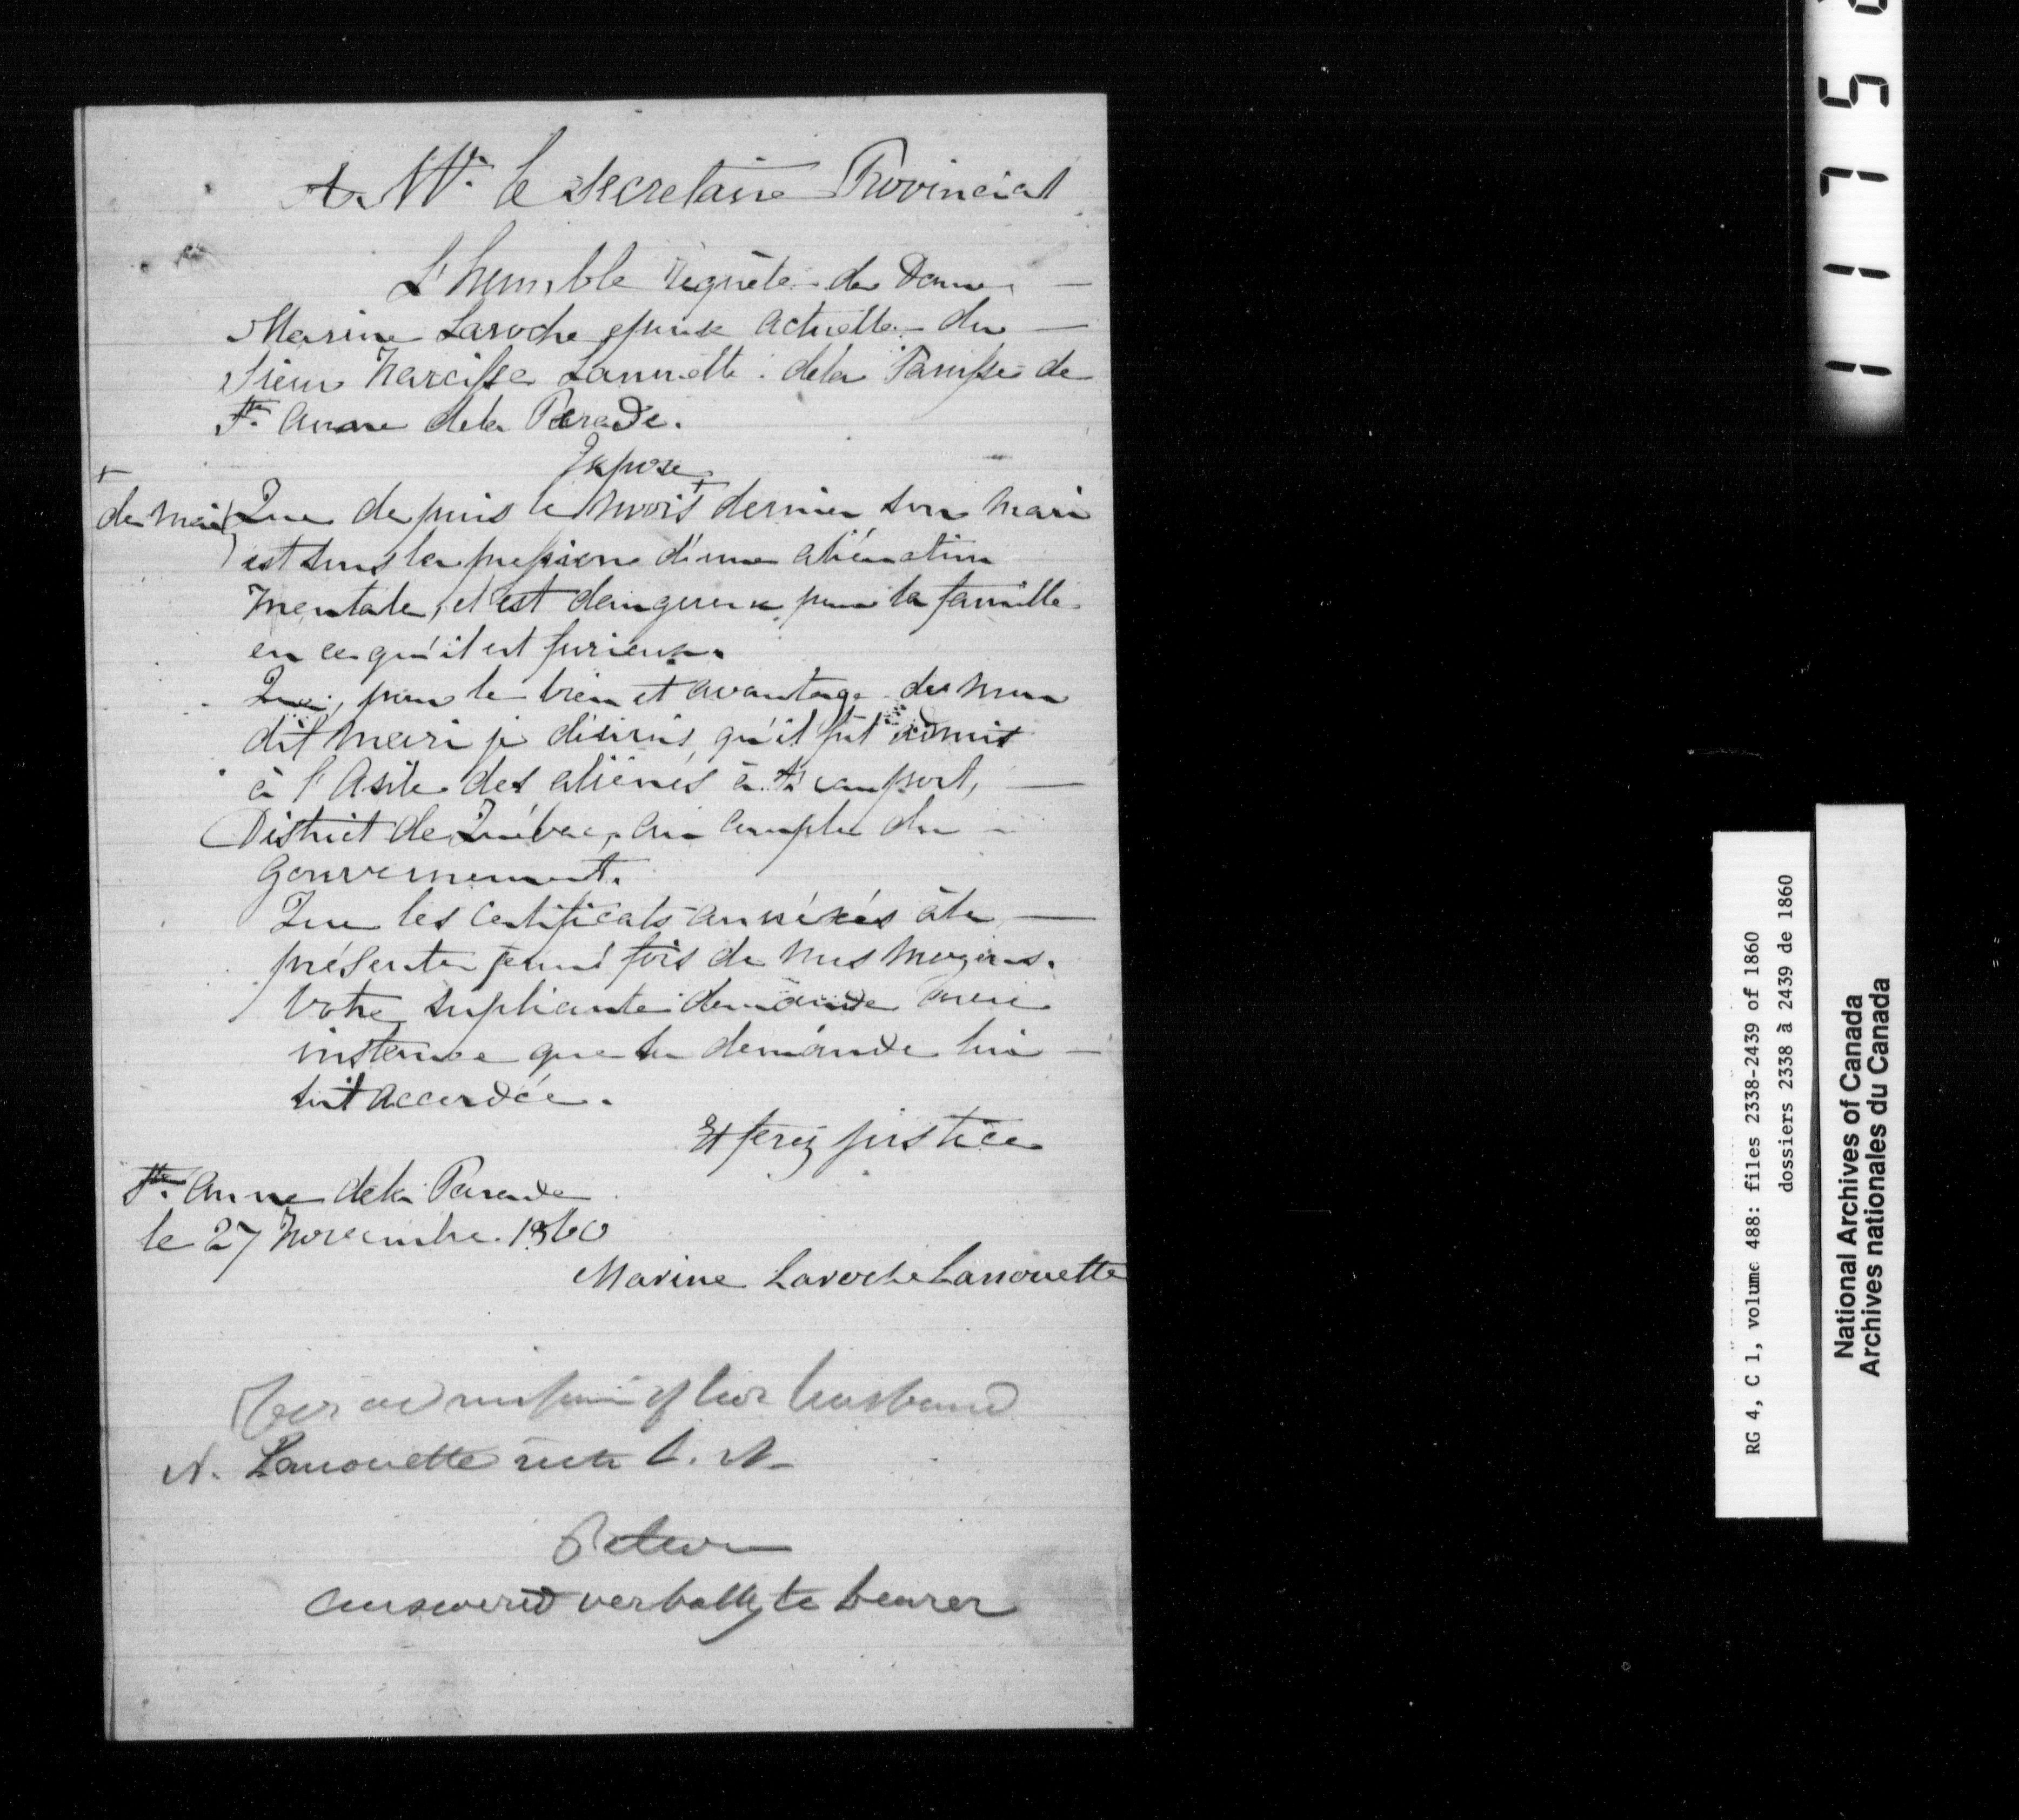 A Mr. le Secretaire Provincial
L'humble requête de Dame
Marine Laroche epouse actuelle du
Sieur Narcisse Lanouette de la Paroisse de
Ste. Anne de la Perade.
Expose
+
de mai
Que depuis le mois + dernier son mari
est sous la pression d'une aliénation
mentale, et est dangereux pour la famille
en ce qu'il est furieux.
Que, pour le bien et avantage de mon
dit mari je désirais qu'il fut admis
à l'Asile des aliénés à Beauport,
District de Québec, au compte du
Gouvernement.
Que les certificats annéxés à la
présente feront fois de mes moyens.
Votre supliante demande avec
instance que sa demande lui
soit accordée.
Et ferez justice
Ste. Anne de la Parade
le 27 Novembre 1860
Marine Laroche Lanouette
for admission of her husband
N. Lanouette into L. A.
answered verbally to bearer
11750
RG 4, C 1, volume 488: files 2338-2439 of 1860
dossiers 2338 à 2439 de 1860
National Archives of Canada
Archives nationales du Canada